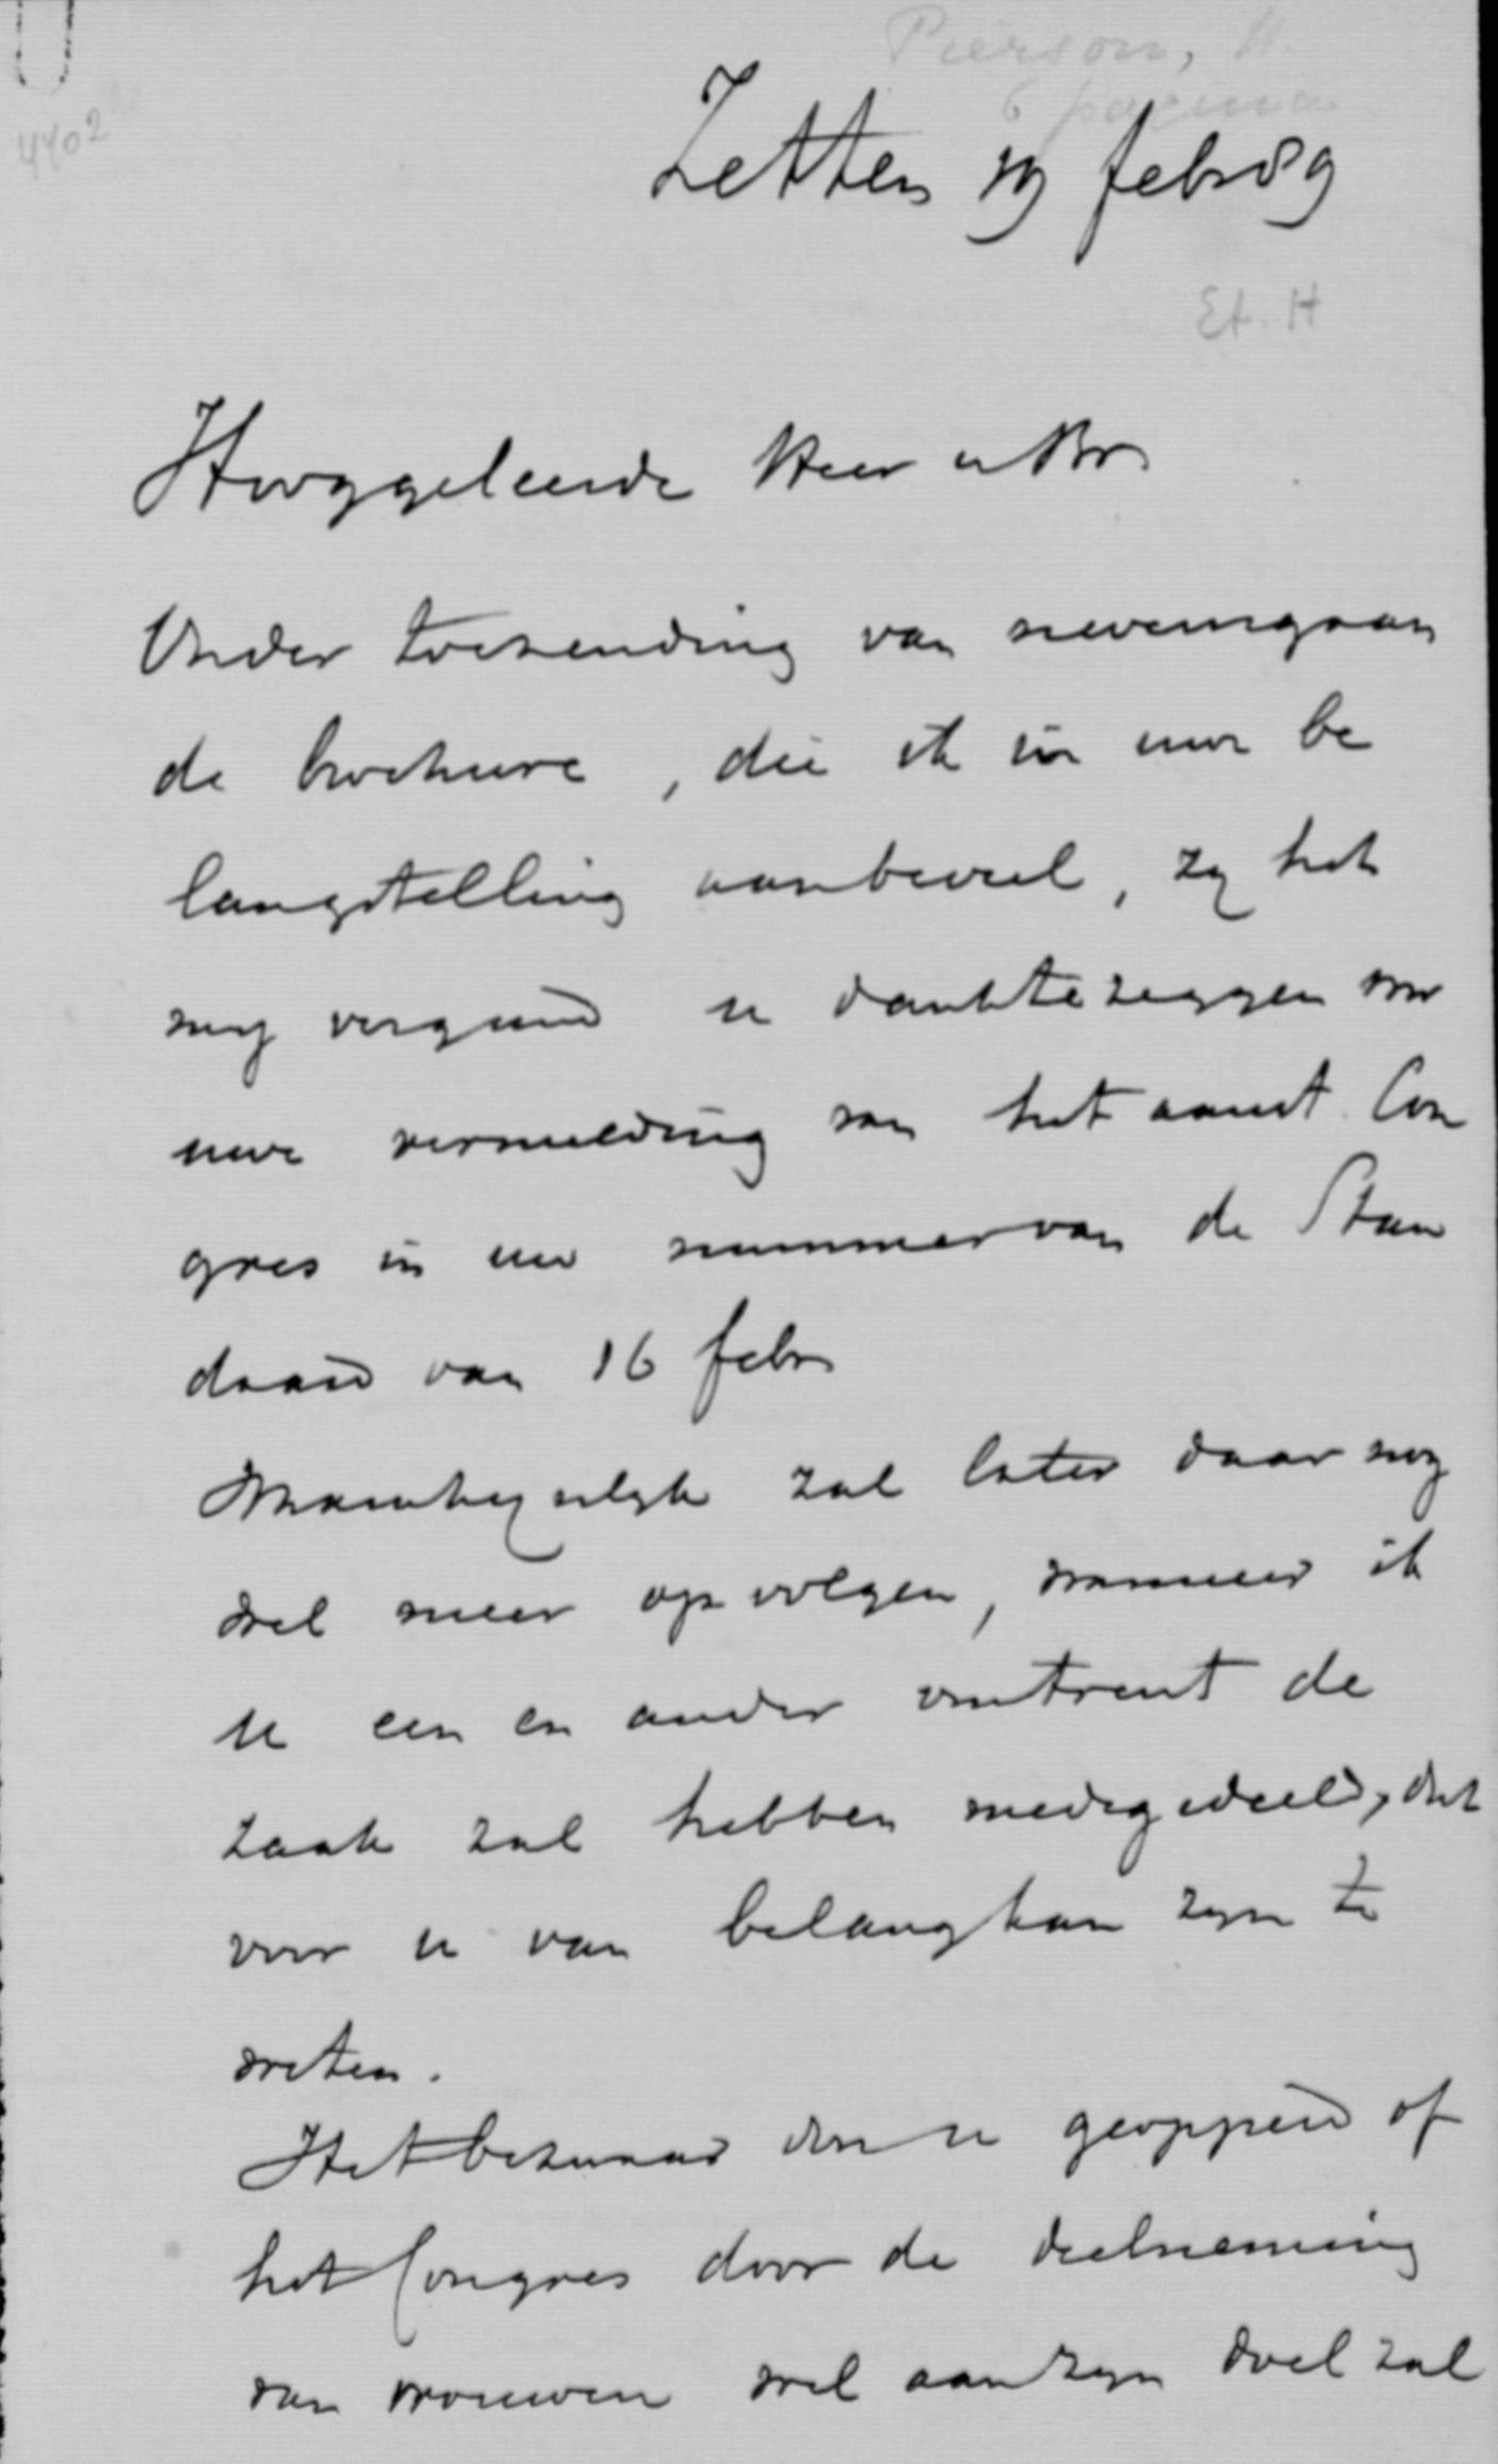 Pierson, H.
6 pagina
4402
Zetten 19 febr 89
Et. H
Hooggeleerde Heer en Br
Onder toezending van nevensgaan
de brochure, die ik in uwe be
langstelling aanbeveel, zij het
mij vergund u dank te zeggen voor
uwe vermelding van het aanst. Con
gres in uw nummer van de Stan
daard van 16 febr
Waarschijnlijk zal later daar nog
wel meer op volgen, wanneer ik
u een en ander omtrent de
zaak zal hebben medegedeeld, dat
voor u van belang kan zijn te
weten.
Het bezwaar door u geopperd of
het Congres door de deelneming
van vrouwen wel aan zijn doel zal